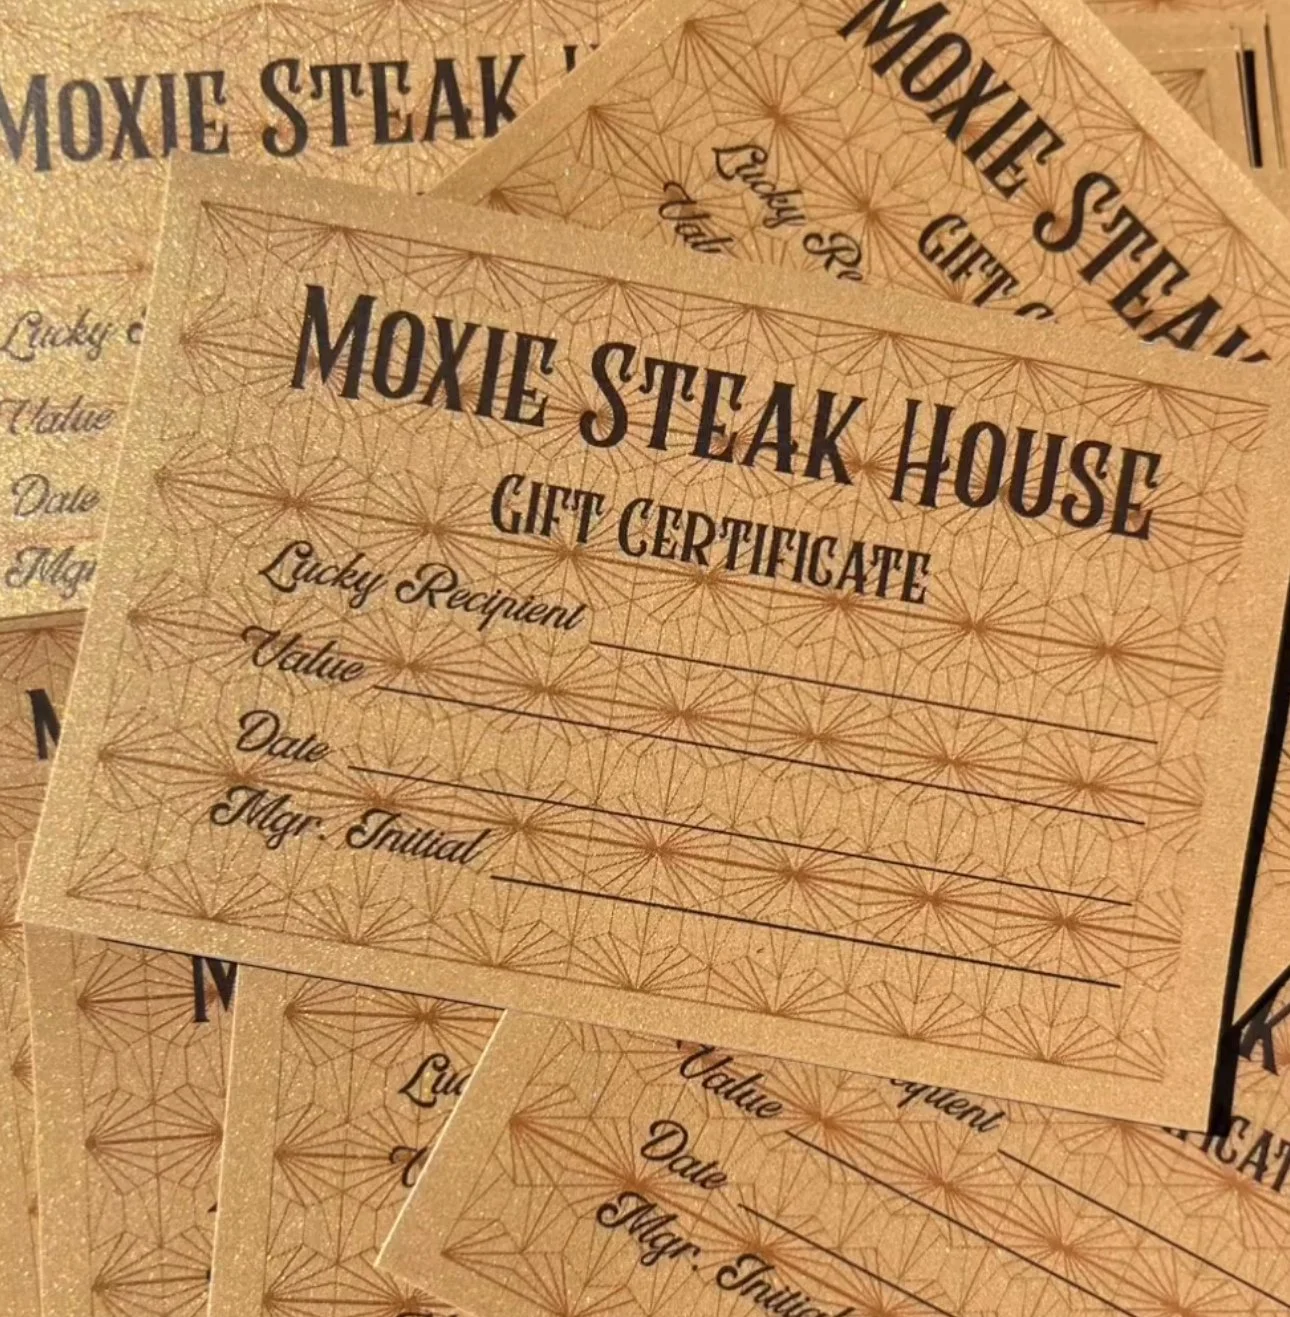 MOXIE STEAK
Lucky
Value
Date
MOXIE STEAK
GIFT
Lucky Re
Val
MOXIE STEAK HOUSE
GIFT CERTIFICATE
Lucky Recipient
Value
Date
Mgr. Initial
M
M
Luc
Value
Date
Mgr. Initial